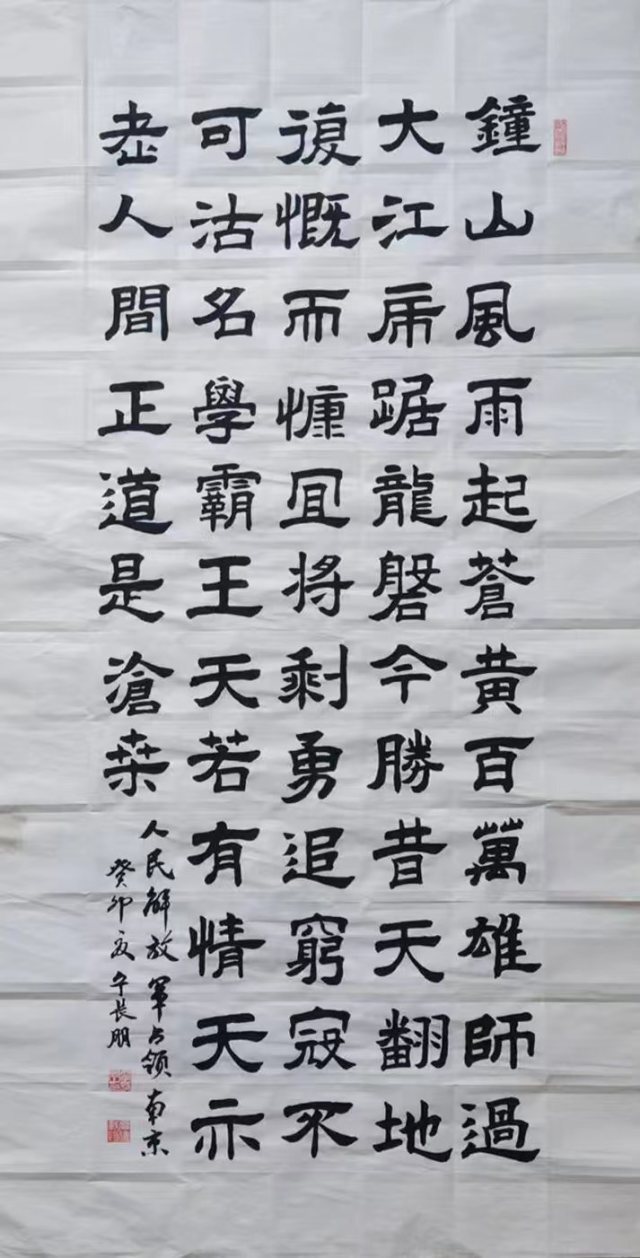 鐘山風雨起蒼黃百萬雄師過
大江虎踞龍磐今勝昔天翻地
復慨而慷宜將剩勇追窮寇不
可沽名學霸王天若有情天亦
老人間正道是滄桑
人民解放軍占領南京
癸卯夏午長朋